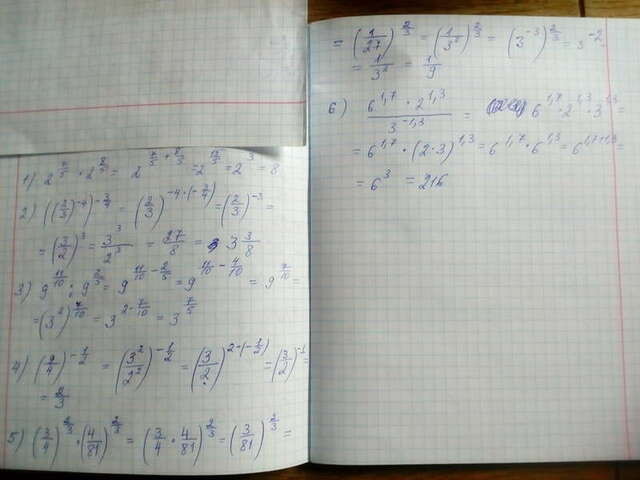 1) 2^(7/5) · 2^(8/5) = 2^(7/5 + 8/5) = 2^(15/5) = 2^3 = 8
2) ((2/3)^-4)^(-3/4) = (2/3)^(-4·(-3/4)) = (2/3)^-3 =
= (3/2)^3 = 3^3/2^3 = 27/8 = 3 3/8
3) 9^(11/10) : 9^(2/5) = 9^(11/10 - 2/5) = 9^(11/10 - 4/10) = 9^(7/10) =
= (3^2)^(7/10) = 3^(2·7/10) = 3^(7/5)
4) (9/4)^(-1/2) = (3^2/2^2)^(-1/2) = (3/2)^(2·(-1/2)) = (3/2)^-1 =
= 2/3
5) (3/4)^(2/3) · (4/81)^(2/3) = (3/4 · 4/81)^(2/3) = (3/81)^(2/3) =
= (1/27)^(2/3) = (1/3^3)^(2/3) = (3^-3)^(2/3) = 3^-2
= 1/3^2 = 1/9
6) 6^1,7 · 2^1,3 / 3^-1,3 = 6^1,7 · 2^1,3 · 3^1,3 =
= 6^1,7 · (2·3)^1,3 = 6^1,7 · 6^1,3 = 6^(1,7+1,3) =
= 6^3 = 216